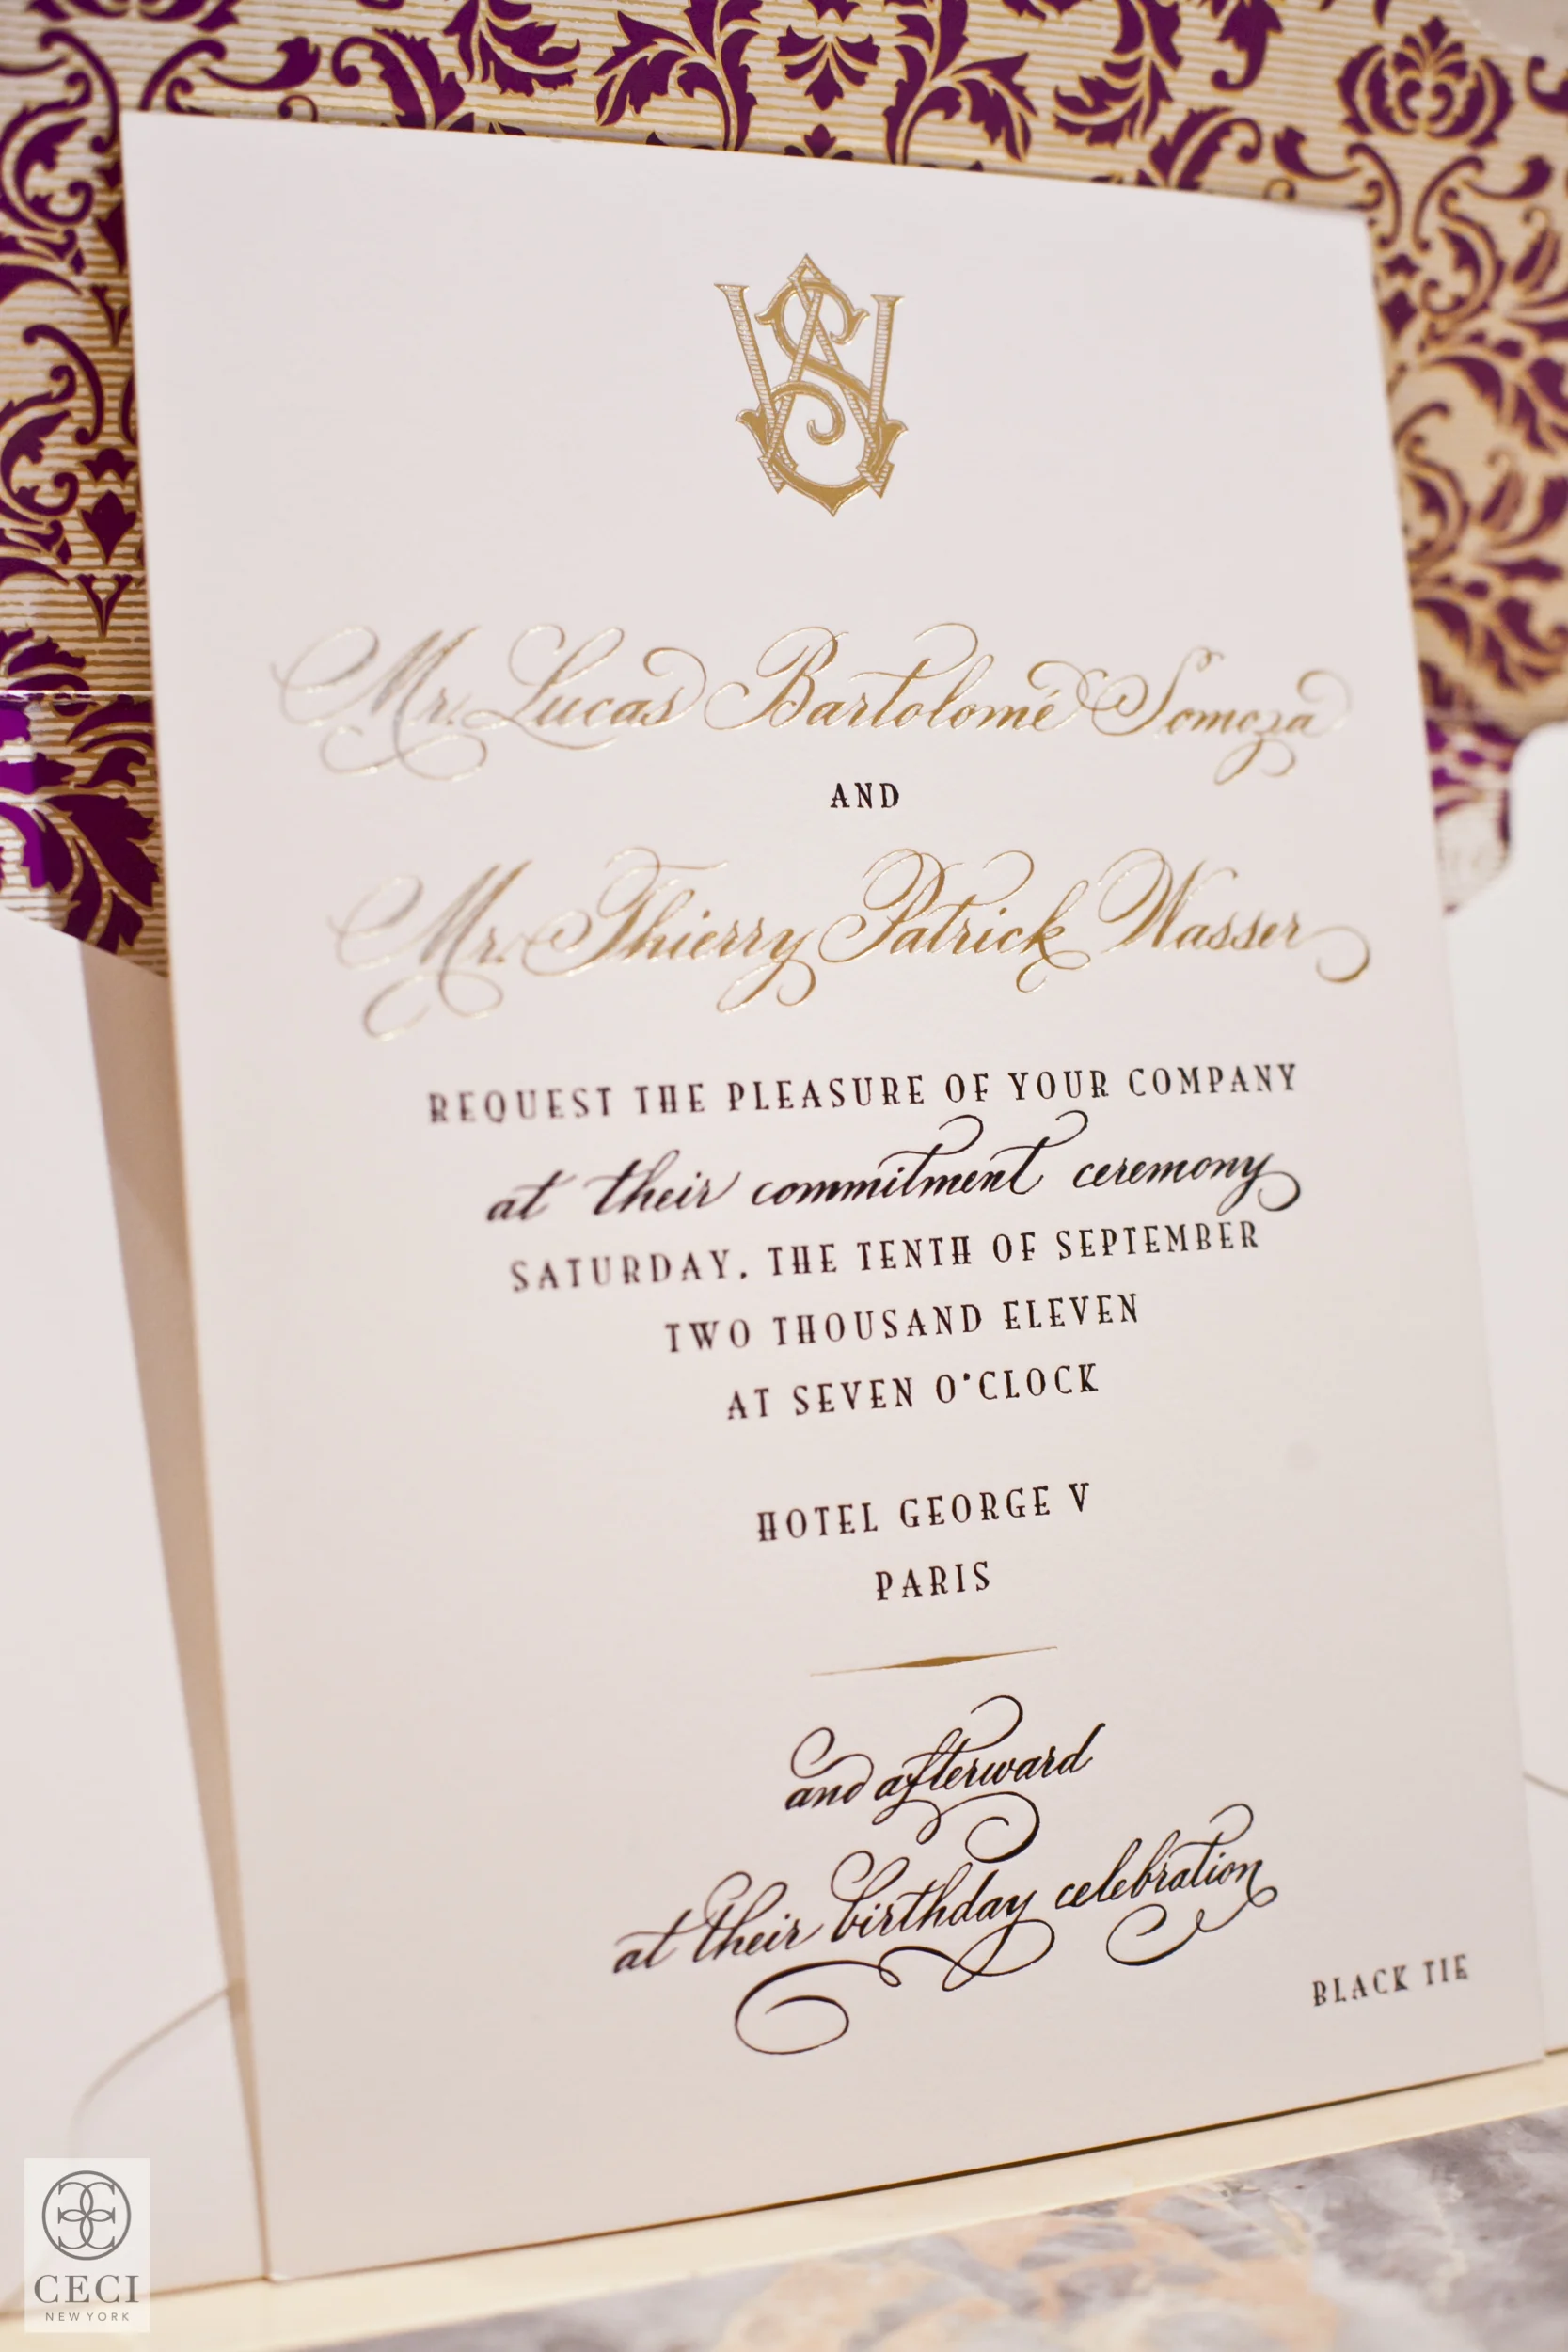 WS
Mr. Lucas Bartolomé Somoza
AND
Mr. Thierry Patrick Wasser
REQUEST THE PLEASURE OF YOUR COMPANY
at their commitment ceremony
SATURDAY, THE TENTH OF SEPTEMBER
TWO THOUSAND ELEVEN
AT SEVEN O'CLOCK
HOTEL GEORGE V
PARIS
and afterward
at their birthday celebration
BLACK TIE
CECI
NEW YORK